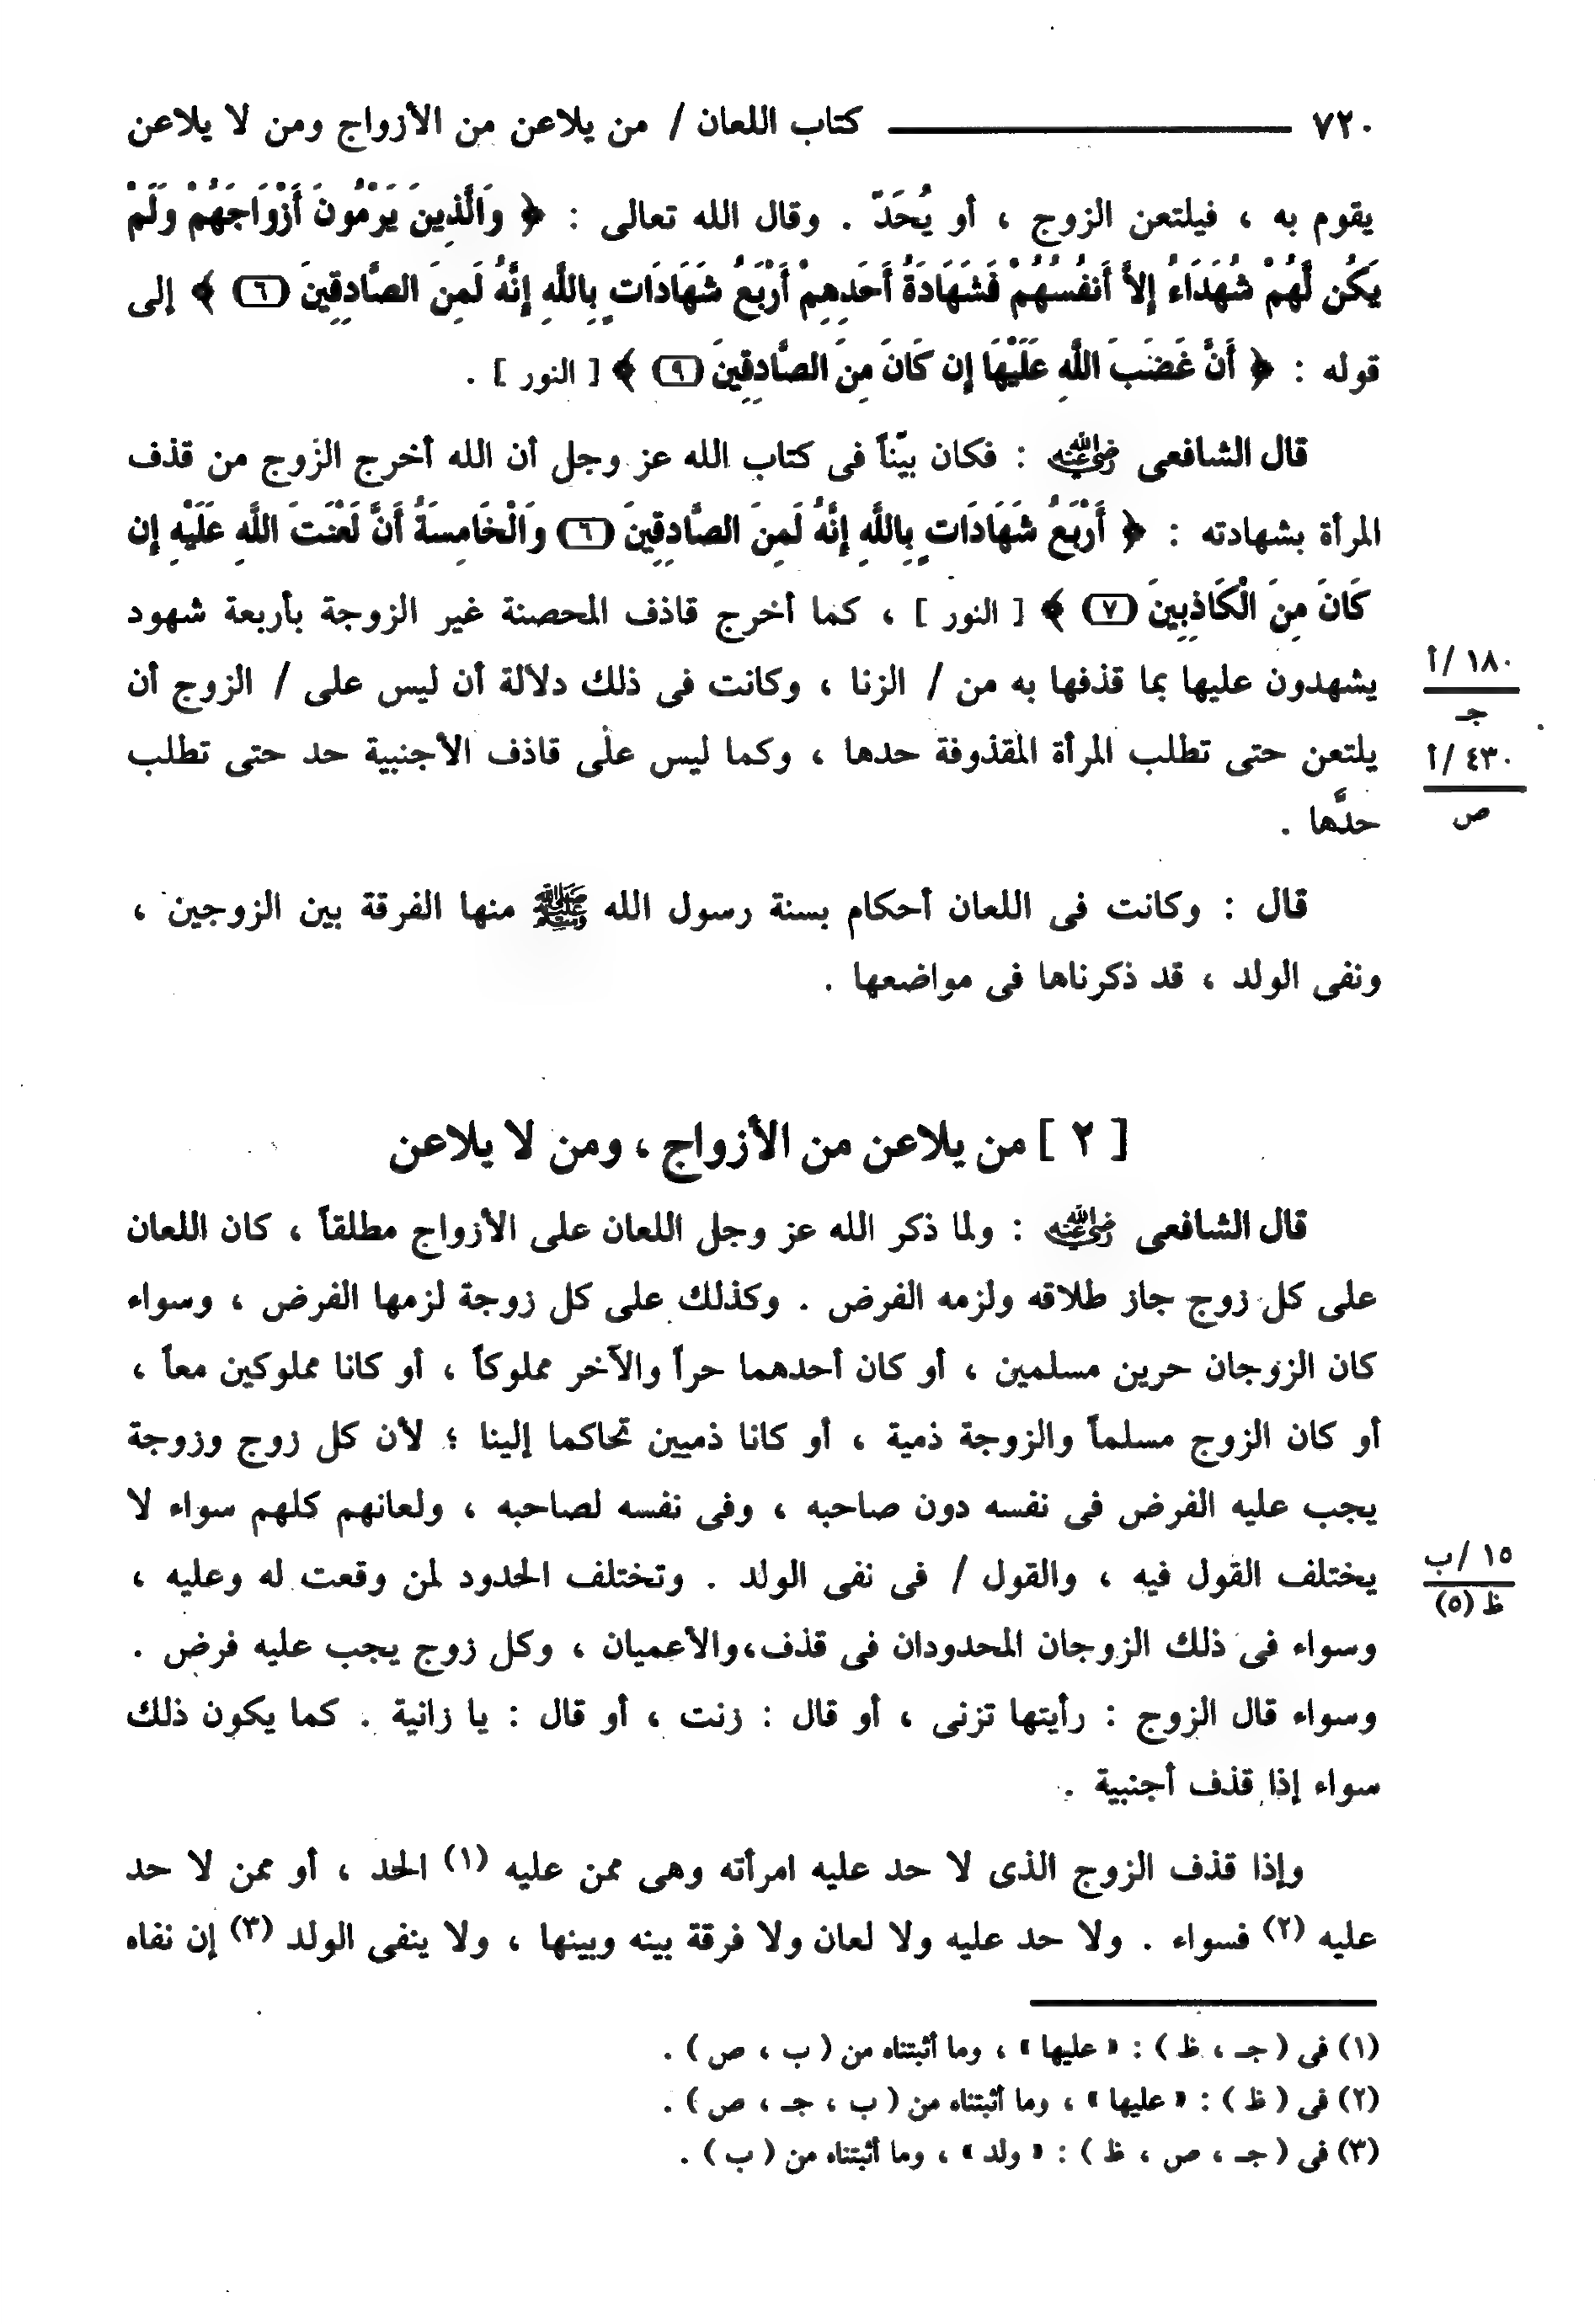 ٧٢٠ ــــــــــ كتاب اللعان / من يلاعن من الأزواج ومن لا يلاعن
يقوم به ، فيلتعن الزوج ، أو يُحَدّ . وقال الله تعالى : ﴿ وَالَّذِينَ يَرْمُونَ أَزْوَاجَهُمْ وَلَمْ
يَكُن لَّهُمْ شُهَدَاءُ إِلاَّ أَنفُسُهُمْ فَشَهَادَةُ أَحَدِهِمْ أَرْبَعُ شَهَادَاتٍ بِاللَّهِ إِنَّهُ لَمِنَ الصَّادِقِينَ (٦) ﴾ إلى
قوله : ﴿ أَنَّ غَضَبَ اللَّهِ عَلَيْهَا إِن كَانَ مِنَ الصَّادِقِينَ (٩) ﴾ [ النور ] .
قال الشافعى رضي الله عنه : فكان بيّناً فى كتاب الله عز وجل أن الله أخرج الزوج من قذف
المرأة بشهادته : ﴿ أَرْبَعُ شَهَادَاتٍ بِاللَّهِ إِنَّهُ لَمِنَ الصَّادِقِينَ (٦) وَالْخَامِسَةُ أَنَّ لَعْنَتَ اللَّهِ عَلَيْهِ إِن
كَانَ مِنَ الْكَاذِبِينَ (٧) ﴾ [ النور ] ، كما أخرج قاذف المحصنة غير الزوجة بأربعة شهود
يشهدون عليها بما قذفها به من / الزنا ، وكانت فى ذلك دلالة أن ليس على / الزوج أن
١٨٠ /أ
جـ
يلتعن حتى تطلب المرأة المقذوفة حدها ، وكما ليس على قاذف الأجنبية حد حتى تطلب
٤٣٠ /أ
ص
حدَّها .
قال : وكانت فى اللعان أحكام بسنة رسول الله ﷺ منها الفرقة بين الزوجين ،
ونفى الولد ، قد ذكرناها فى مواضعها .
[ ٢ ] من يلاعن من الأزواج ، ومن لا يلاعن
قال الشافعى رضي الله عنه : ولما ذكر الله عز وجل اللعان على الأزواج مطلقاً ، كان اللعان
على كل زوج جاز طلاقه ولزمه الفرض . وكذلك على كل زوجة لزمها الفرض ، وسواء
كان الزوجان حرين مسلمين ، أو كان أحدهما حراً والآخر مملوكاً ، أو كانا مملوكين معاً ،
أو كان الزوج مسلماً والزوجة ذمية ، أو كانا ذميين تحاكما إلينا ؛ لأن كل زوج وزوجة
يجب عليه الفرض فى نفسه دون صاحبه ، وفى نفسه لصاحبه ، ولعانهم كلهم سواء لا
يختلف القول فيه ، والقول / فى نفى الولد . وتختلف الحدود لمن وقعت له وعليه ،
١٥ /ب
ظ (٥)
وسواء فى ذلك الزوجان المحدودان فى قذف،والأعميان ، وكل زوج يجب عليه فرض .
وسواء قال الزوج : رأيتها تزنى ، أو قال : زنت ، أو قال : يا زانية . كما يكون ذلك
سواء إذا قذف أجنبية .
وإذا قذف الزوج الذى لا حد عليه امرأته وهى ممن عليه (١) الحد ، أو ممن لا حد
عليه (٢) فسواء . ولا حد عليه ولا لعان ولا فرقة بينه وبينها ، ولا ينفى الولد (٣) إن نفاه
(١) فى ( جـ ، ظ ) : « عليها » ، وما أثبتناه من ( ب ، ص ) .
(٢) فى ( ظ ) : « عليها » ، وما أثبتناه من ( ب ، جـ ، ص ) .
(٣) فى ( جـ ، ص ، ظ ) : « ولد » ، وما أثبتناه من ( ب ) .